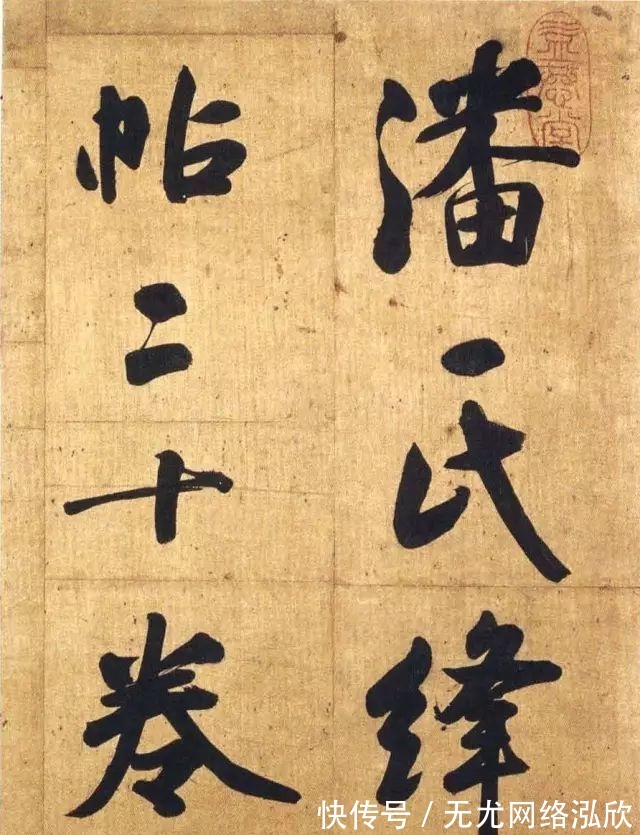 潘氏絳
帖二十卷
快传号 / 无尤网络泓欣